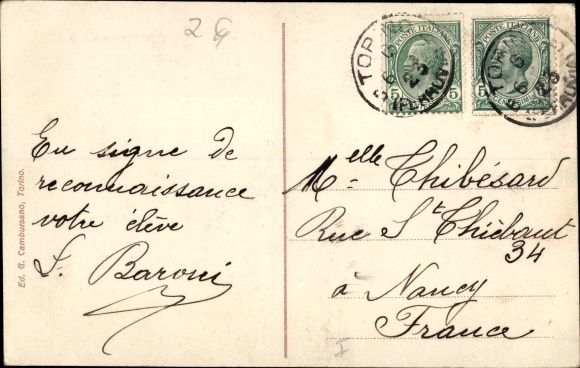 2
En signe de
reconnaissance
votre élève
S. Baroni
Melle Thibésard
Rue St Thiébaut
34
à Nancy
France
Ed. G. Cambursano, Torino.
POSTE ITALIANE
5
5
POSTE ITALIANE
5
TORINO
TORINO
(FERROVIA)
I